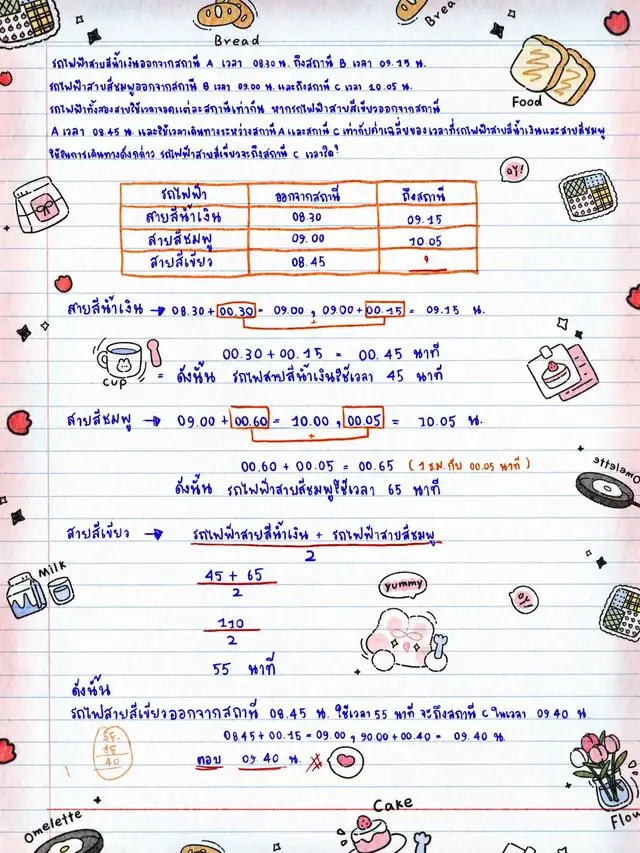 Bread
Bread
Food
รถไฟฟ้าสายสีน้ำเงินออกจากสถานี A เวลา 08.30 น. ถึงสถานี B เวลา 09.15 น.
รถไฟฟ้าสายสีชมพูออกจากสถานี B เวลา 09.00 น. และถึงสถานี C เวลา 10.05 น.
รถไฟฟ้าทั้งสองสายใช้เวลาจอดแต่ละสถานีเท่ากัน หากรถไฟฟ้าสายสีเขียวออกจากสถานี
A เวลา 08.45 น. และใช้เวลาเดินทางระหว่างสถานี A และสถานี C เท่ากับค่าเฉลี่ยของเวลาที่รถไฟฟ้าสายสีน้ำเงินและสายสีชมพู
ใช้ในการเดินทางดังกล่าว รถไฟฟ้าสายสีเขียวจะถึงสถานี C เวลาใด?
OY!
รถไฟฟ้า ออกจากสถานี ถึงสถานี
สายสีน้ำเงิน 08.30 09.15
สายสีชมพู 09.00 10.05
สายสีเขียว 08.45 ?
สายสีน้ำเงิน → 08.30 + 00.30 = 09.00 , 09.00 + 00.15 = 09.15 น.
+
00.30 + 00.15 = 00.45 นาที
cup
= ดังนั้น รถไฟสายสีน้ำเงินใช้เวลา 45 นาที
สายสีชมพู → 09.00 + 00.60 = 10.00 , 00.05 = 10.05 น.
+
00.60 + 00.05 = 00.65 (1 ชม. กับ 00.05 นาที)
ดังนั้น รถไฟฟ้าสายสีชมพูใช้เวลา 65 นาที
Omelette
สายสีเขียว → รถไฟฟ้าสายสีน้ำเงิน + รถไฟฟ้าสายสีชมพู
2
Milk
45 + 65
2
yummy
OY!
110
2
55 นาที
ดังนั้น
รถไฟสายสีเขียวออกจากสถานี 08.45 น. ใช้เวลา 55 นาที จะถึงสถานี C ในเวลา 09.40 น.
08.45 + 00.15 = 09.00 , 90.00 + 00.40 = 09.40 น.
55-
15
40
ตอบ 09.40 น.
Omelette
Cake
Flow